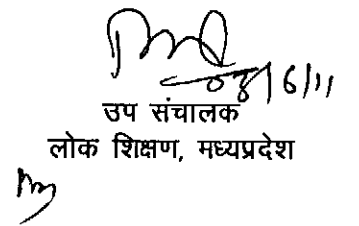 08/6/11
उप संचालक
लोक शिक्षण, मध्यप्रदेश